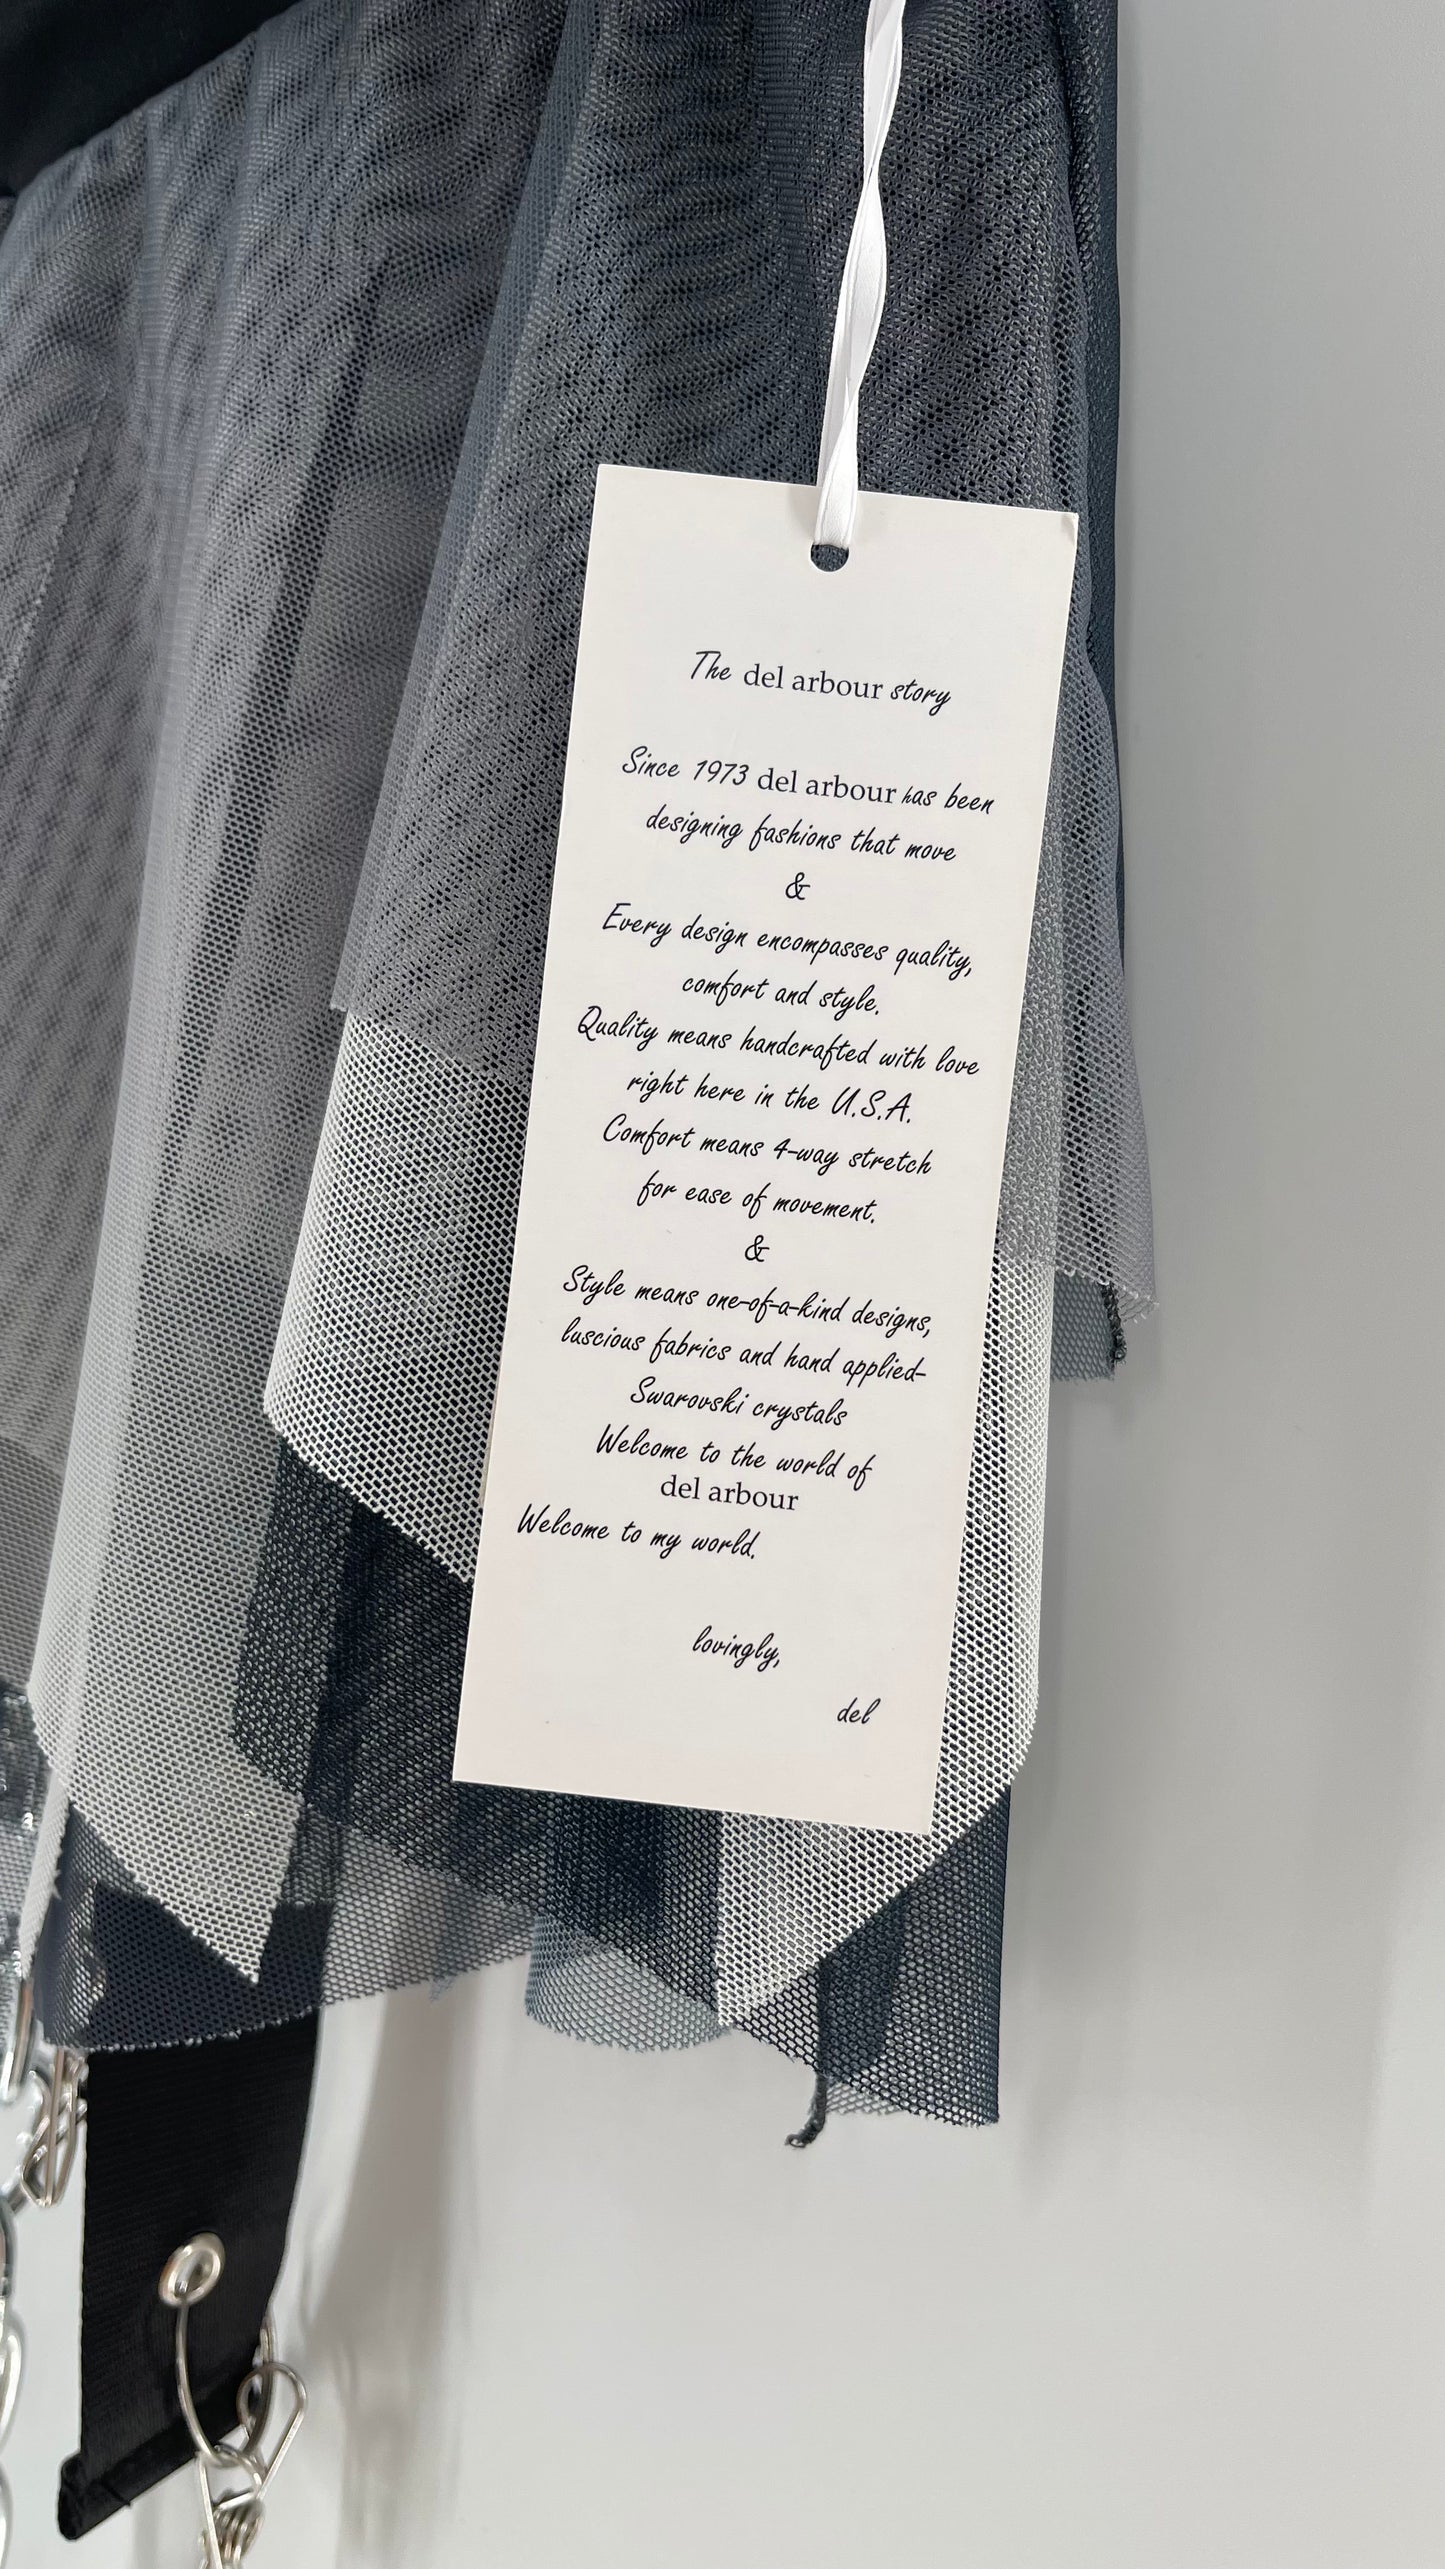 The del arbour story
Since 1973 del arbour has been
designing fashions that move
&
Every design encompasses quality,
comfort and style.
Quality means handcrafted with love
right here in the U.S.A.
Comfort means 4-way stretch
for ease of movement.
&
Style means one-of-a-kind designs,
luscious fabrics and hand applied-
Swarovski crystals
Welcome to the world of
del arbour
Welcome to my world.
lovingly,
del